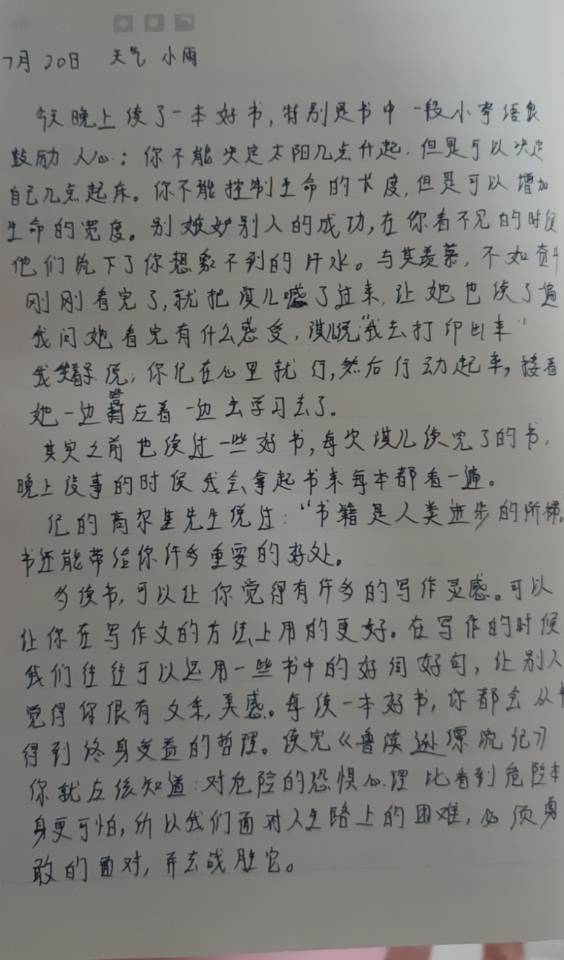 7月20日 天气 小雨
今天晚上读了一本好书,特别是书中一段小寄语很
鼓励人心:你不能决定太阳几点升起.但是可以决定
自己几点起床。你不能控制生命的长度,但是可以增加
生命的宽度。别嫉妒别人的成功,在你看不见的时候
他们流下了你想象不到的汗水。与其羡慕,不如奋斗
刚刚看完了,就把淇儿喊了过来,让她也读了遍
我问她看完有什么感受,淇儿说"我去打印出来"
我笑着说,你记在心里就行,然后行动起来,接着
她一边背着一边去学习去了。
其实之前也读过一些好书,每次淇儿读完了的书,
晚上没事的时候我会拿起书来每本都看一遍。
记的高尔基先生说过:"书籍是人类进步的阶梯。
书还能带给你许多重要的好处。
多读书,可以让你觉得有许多的写作灵感。可以
让你在写作文的方法上用的更好。在写作的时候
我们往往可以运用一些书中的好词好句,让别人
觉得你很有文采,美感。每读一本好书,你都会从中
得到终身受益的哲理。读完《鲁滨逊漂流记》
你就应该知道:对危险的恐惧心理比看到危险本
身更可怕,所以我们面对人生路上的困难,必须勇
敢的面对,并去战胜它。